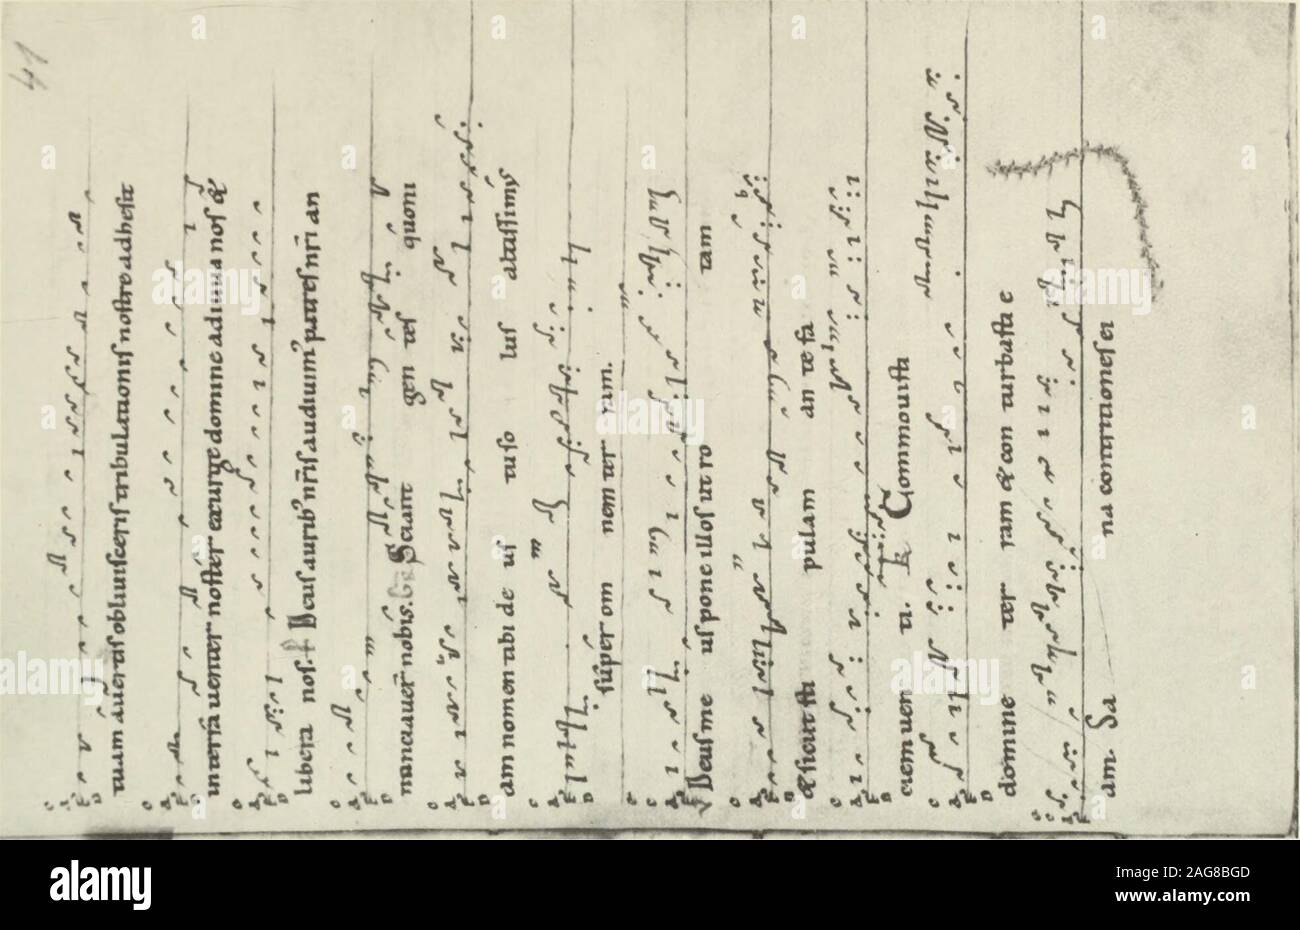 41
tuam auer tis obliuisceris tribulationis nostre adhesit
in terra uenter noster exurge domine adiuua nos &
libera nos. Deus aurib' nr̄is audiuim' patres nr̄i an
nunciauer̄ nobis. Sciant gen tes quoni
am nomen tibi de us tu so lus altissimus
super om nem ter ram.
Deus me us pone illos ut ro tam
& sicut sti pulam an te fa
ciem uen ti. Commouisti
domine ter ram & con turbasti e
am. Sa na contritiones ei
a alamy
alamy
www.alamy.com
Image ID: 2AG8BGD